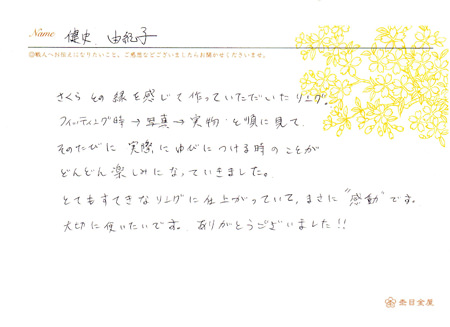 Name 健史 由紀子
◎職人へお伝えになりたいこと、ご感想などございましたらお聞かせくださいませ。
さくら その 縁を感じて作っていただいたリング。
フィッティング時→写真→実物 と順に見て、
そのたびに 実際にゆびにつける時のことが
どんどん楽しみになっていきました。
とてもすてきなリングに仕上がっていて、まさに"感動"です。
大切に使いたいです。ありがとうございました!!
杢目金屋